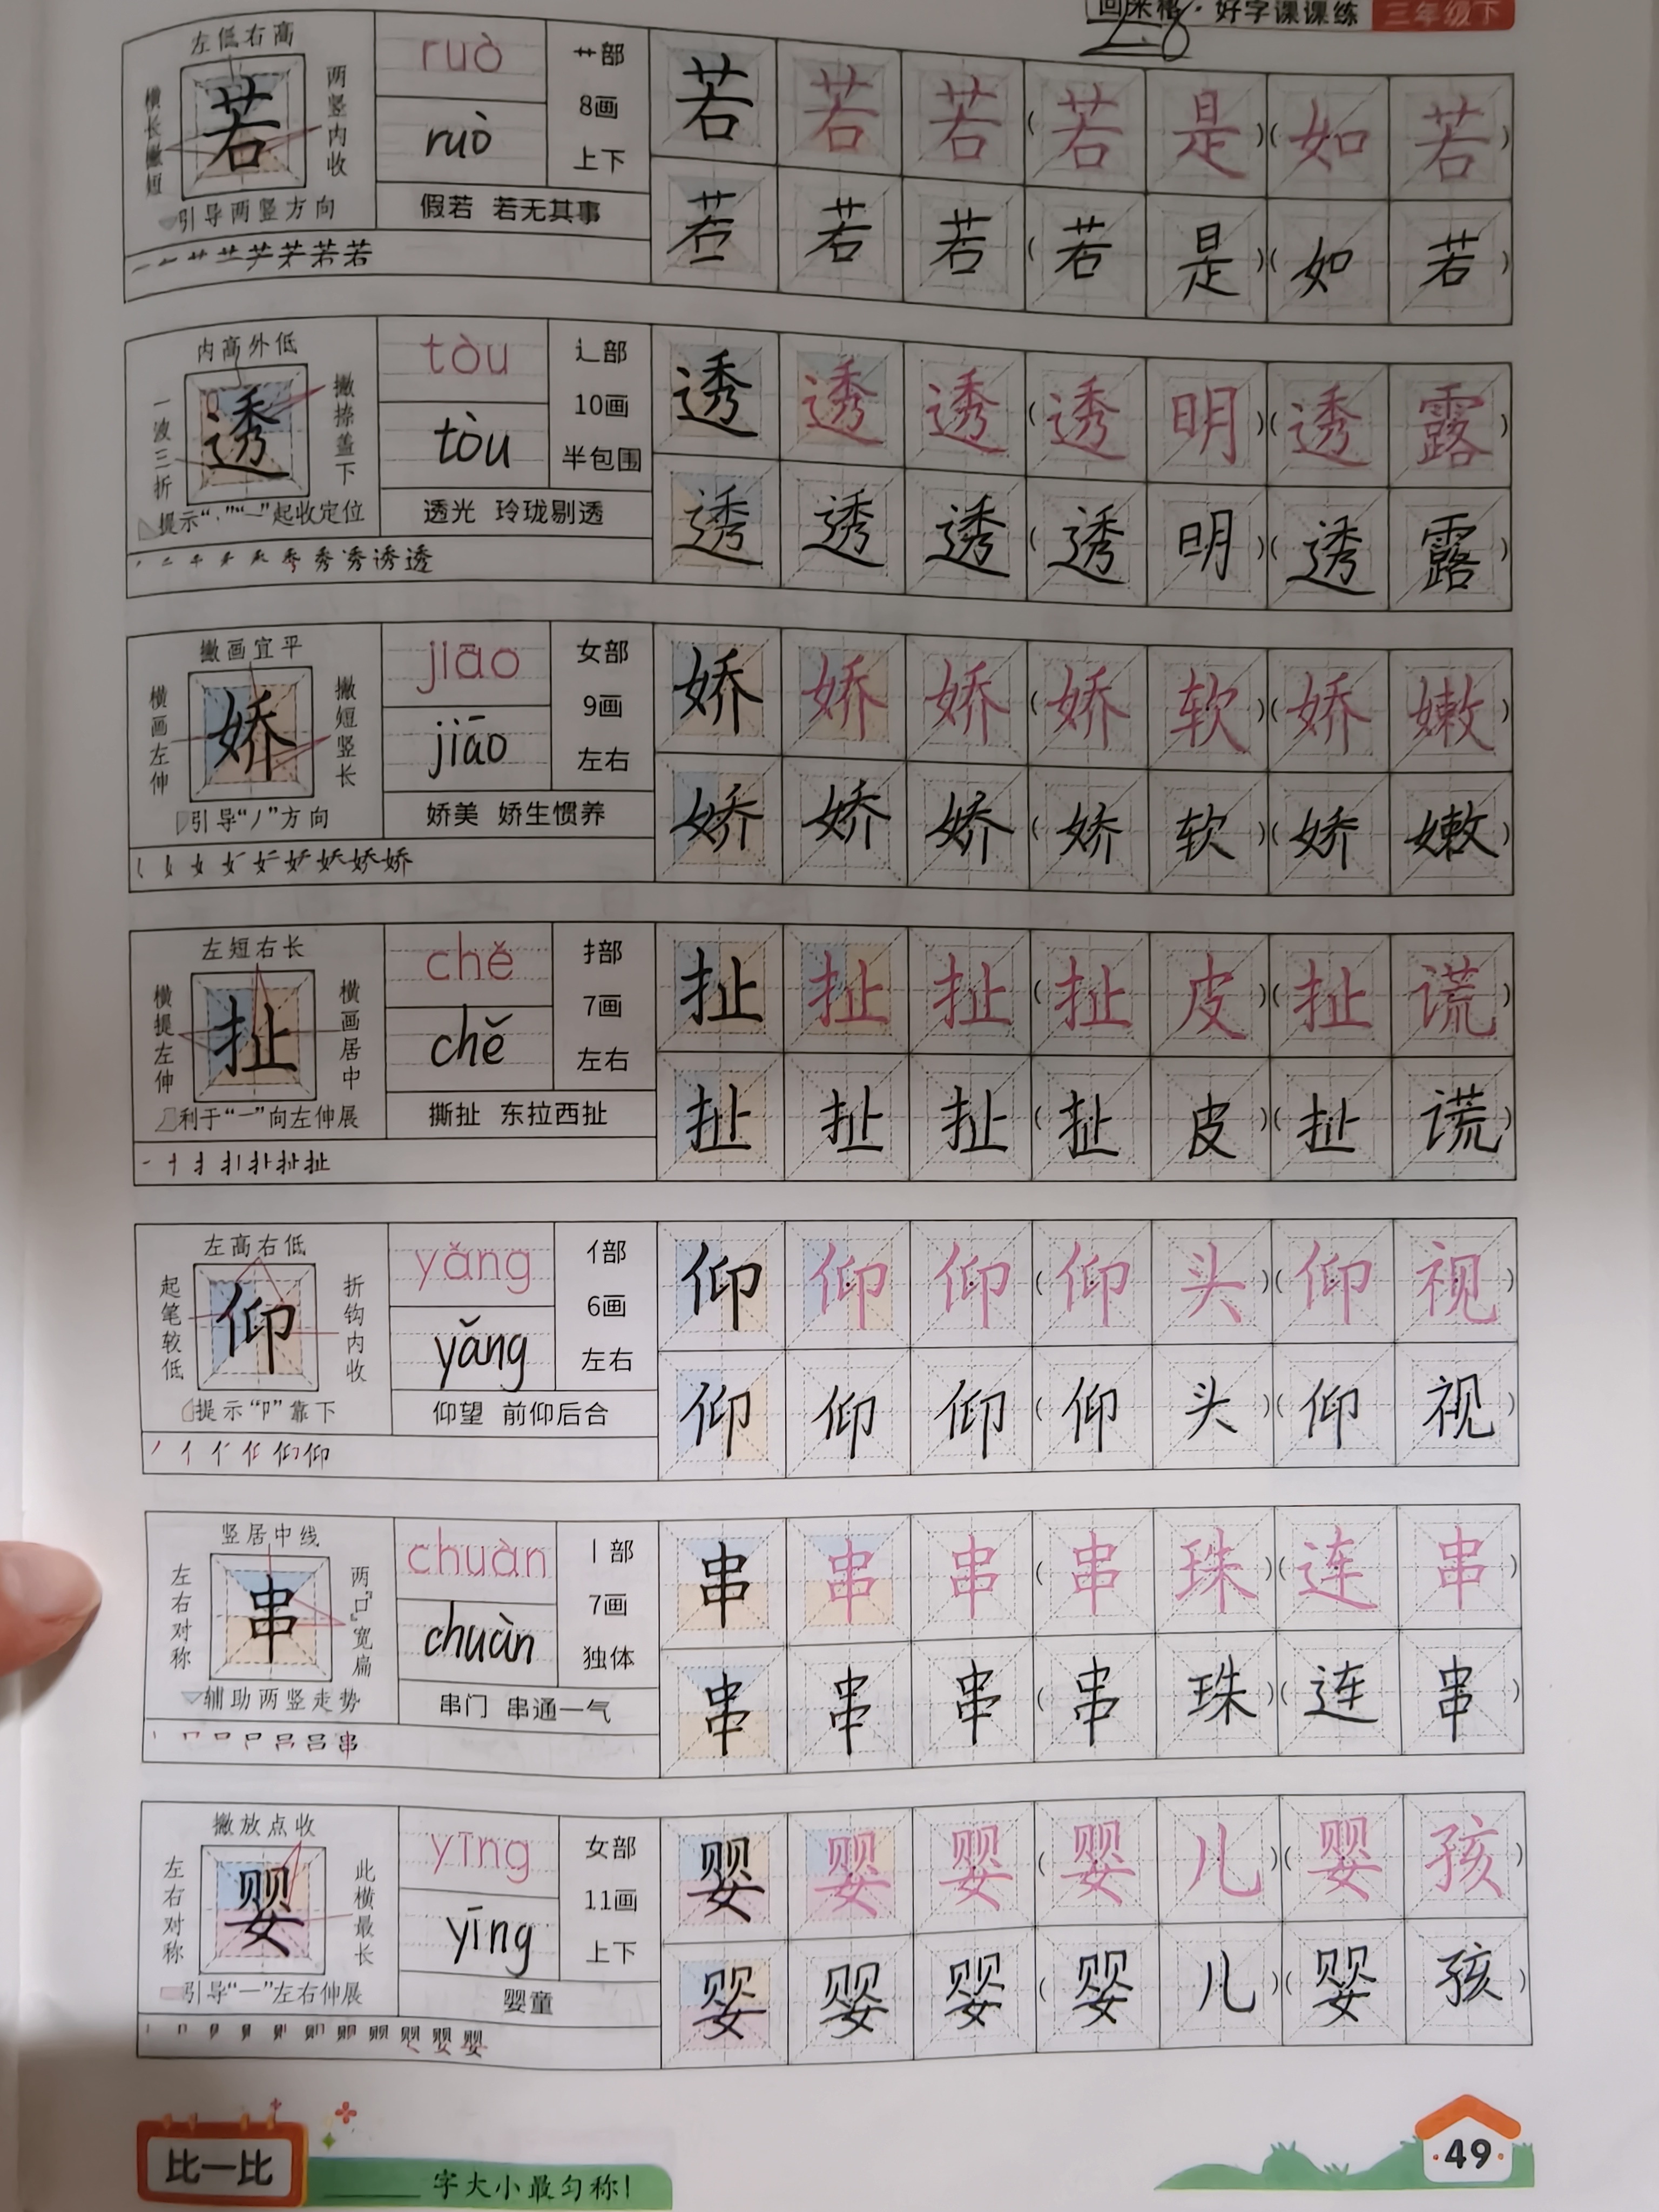 回米格·好字课课练 三年级下
左低右高
横长撇短
两竖内收
若
引导两竖方向
ruò
ruò
艹部
8画
上下
假若 若无其事
若 若 若 (若 是)(如 若)
若 若 若 (若 是)(如 若)
内高外低
一波三折
撇捺盖下
透
提示“丶”“一”起收定位
tòu
tòu
辶部
10画
半包围
透光 玲珑剔透
透 透 透 (透 明)(透 露)
透 透 透 (透 明)(透 露)
撇画宜平
横画左伸
撇短竖长
娇
引导“丿”方向
jiāo
jiāo
女部
9画
左右
娇美 娇生惯养
娇 娇 娇 (娇 软)(娇 嫩)
娇 娇 娇 (娇 软)(娇 嫩)
左短右长
横提左伸
横画居中
扯
利于“一”向左伸展
chě
chě
扌部
7画
左右
撕扯 东拉西扯
扯 扯 扯 (扯 皮)(扯 谎)
扯 扯 扯 (扯 皮)(扯 谎)
左高右低
起笔较低
折钩内收
仰
提示“卩”靠下
yǎng
yǎng
亻部
6画
左右
仰望 前仰后合
仰 仰 仰 (仰 头)(仰 视)
仰 仰 仰 (仰 头)(仰 视)
竖居中线
左右对称
两“口”宽扁
串
辅助两竖走势
chuàn
chuàn
丨部
7画
独体
串门 串通一气
串 串 串 (串 珠)(连 串)
串 串 串 (串 珠)(连 串)
撇放点收
左右对称
此横最长
婴
引导“一”左右伸展
yīng
yīng
女部
11画
上下
婴童
婴 婴 婴 (婴 儿)(婴 孩)
婴 婴 婴 (婴 儿)(婴 孩)
比一比
______字大小最匀称!
·49·